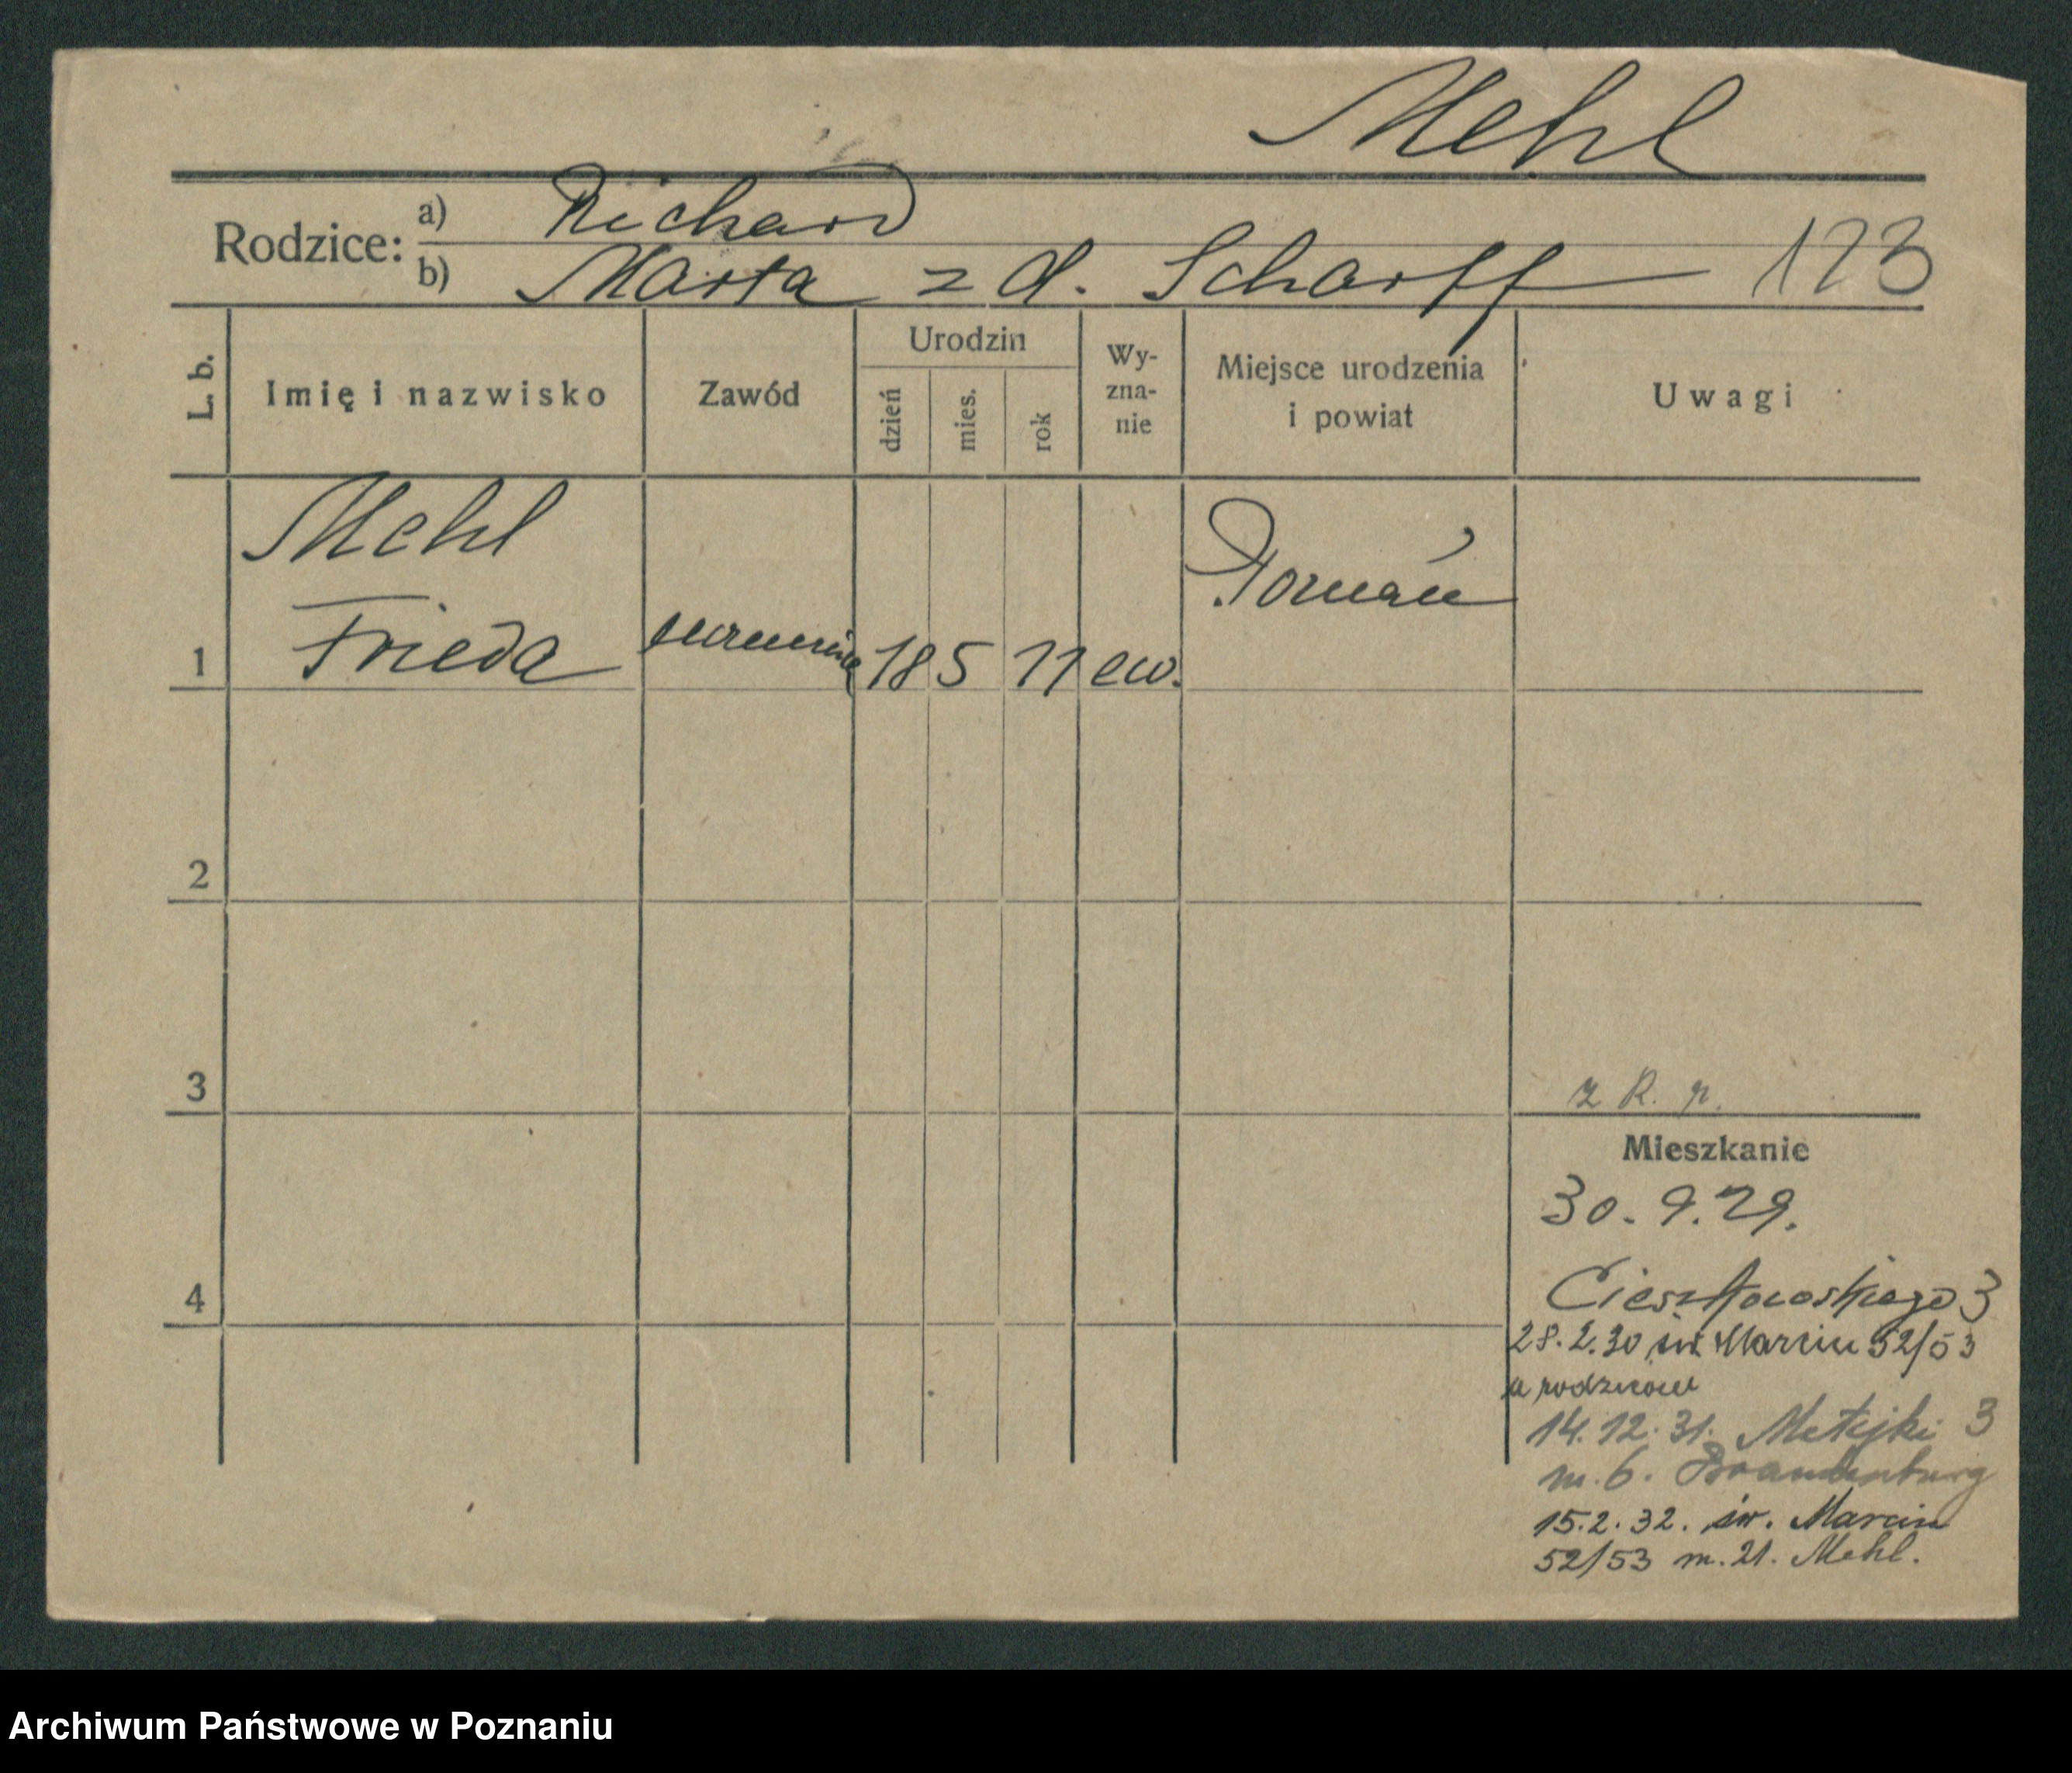 Mehl
Rodzice: a) Richard
b) Marta z d. Scharff 123
L. b. Imię i nazwisko Zawód Urodzin dzień mies. rok Wy-zna-nie Miejsce urodzenia i powiat Uwagi
Mehl
1 Frieda uczennica 18 5 11 ew. Poznań
2
3
z R. p.
Mieszkanie
30. 9. 29.
4 Cieszkowskiego 3
28. 2. 30 św. Marcin 52/53
u rodziców
14. 12. 31. Matejki 3
m. 6. Brandenburg
15. 2. 32. św. Marcin
52/53 m. 21. Mehl.
Archiwum Państwowe w Poznaniu